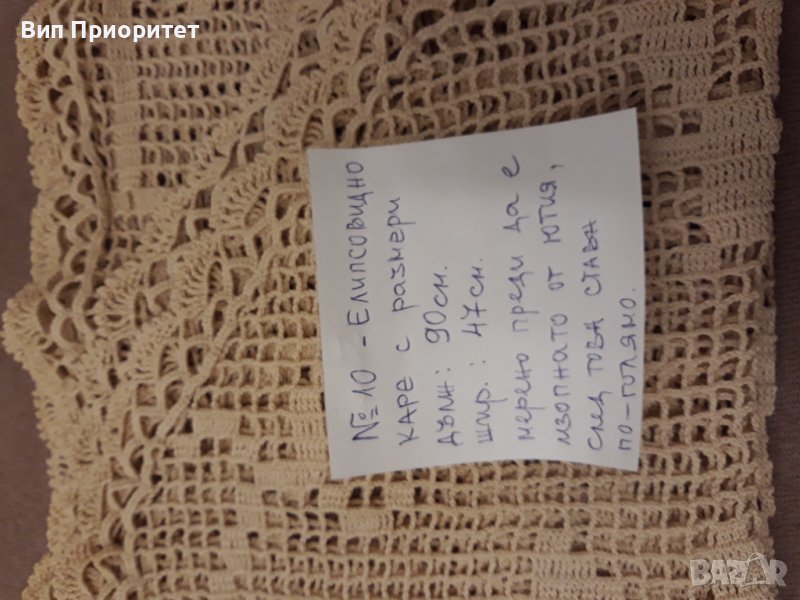 Вип Приоритет
№ 10 - Елипсовидно
каре с размери
дълж: 90см.
шир.: 47см.
мерено преди да е
изопнато от ютия,
след това става
по-голямо.
BAZAR